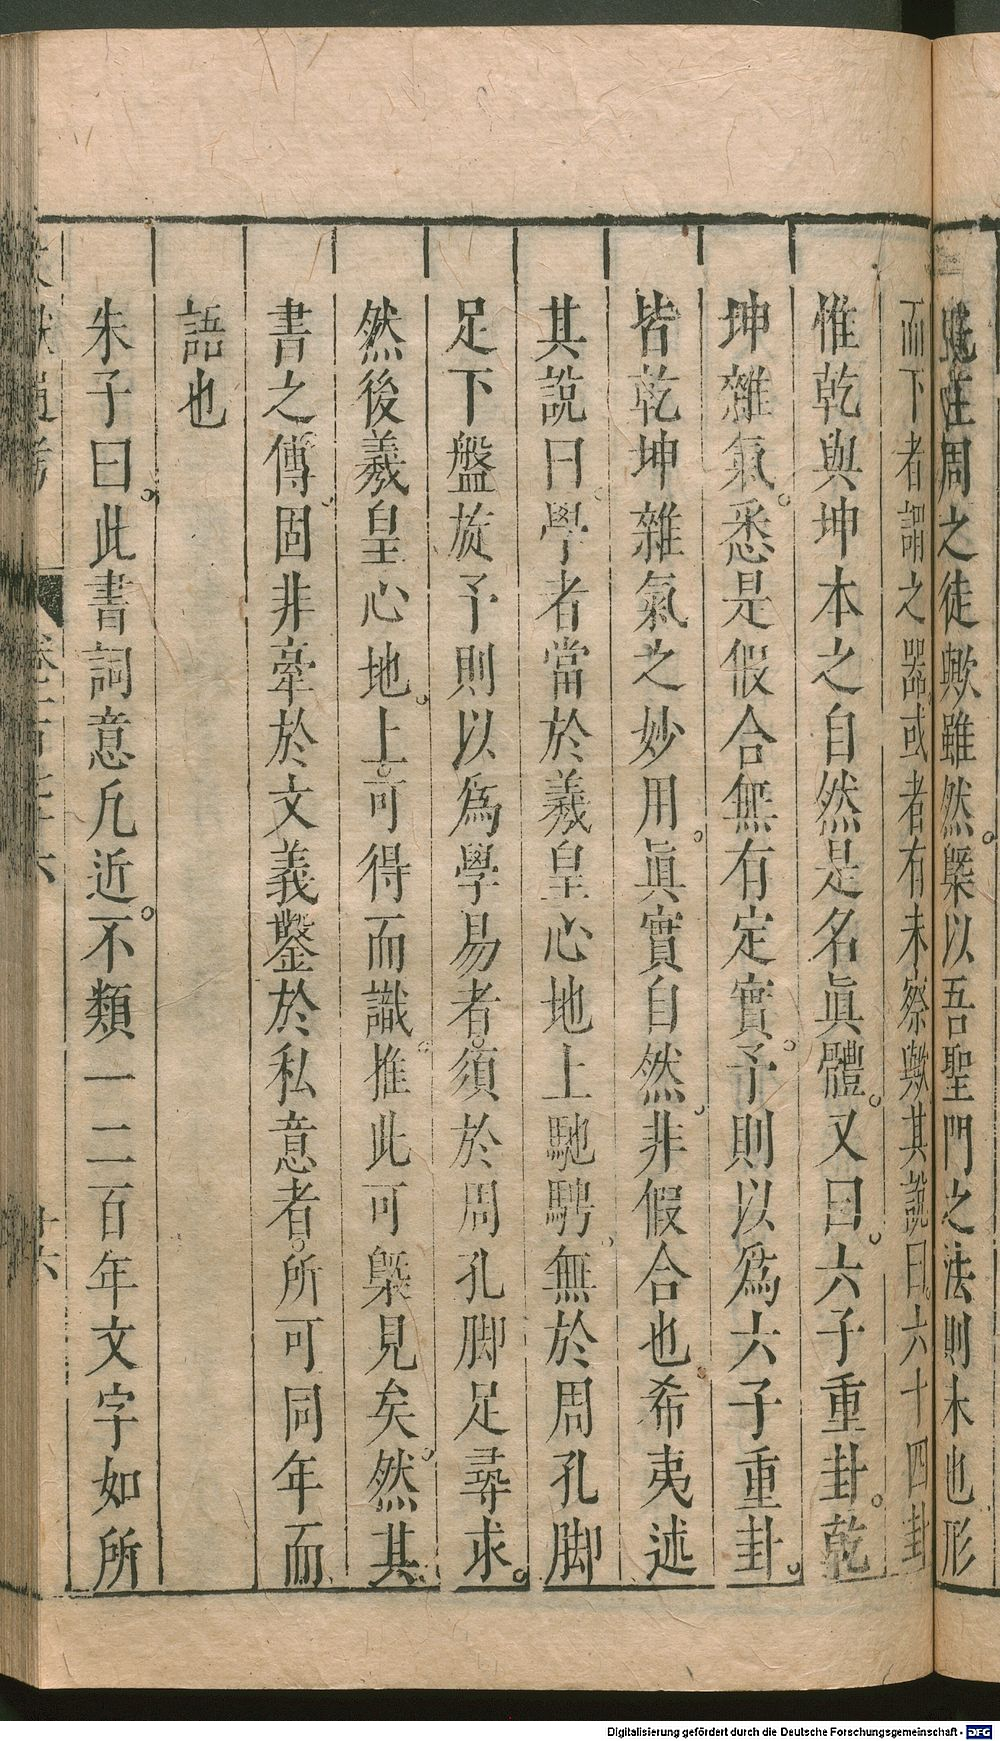 莊周之徒歟雖然槩以吾聖門之法則未也形
而下者謂之器或者有未察歟其說曰六十四卦
惟乾與坤本之自然是名眞體又曰六子重卦乾
坤雜氣悉是假合無有定實予則以爲六子重卦
皆乾坤雜氣之妙用眞實自然非假合也希夷述
其說曰學者當於羲皇心地上馳騁無於周孔脚
足下盤旋予則以爲學易者須於周孔脚足尋求
然後羲皇心地上可得而識推此可槩見矣然其
書之傳固非牽於文義鑿於私意者所可同年而
語也
朱子曰此書詞意凡近不類一二百年文字如所
文獻通考
卷一百七十六
十六
Digitalisierung gefördert durch die Deutsche Forschungsgemeinschaft - DFG